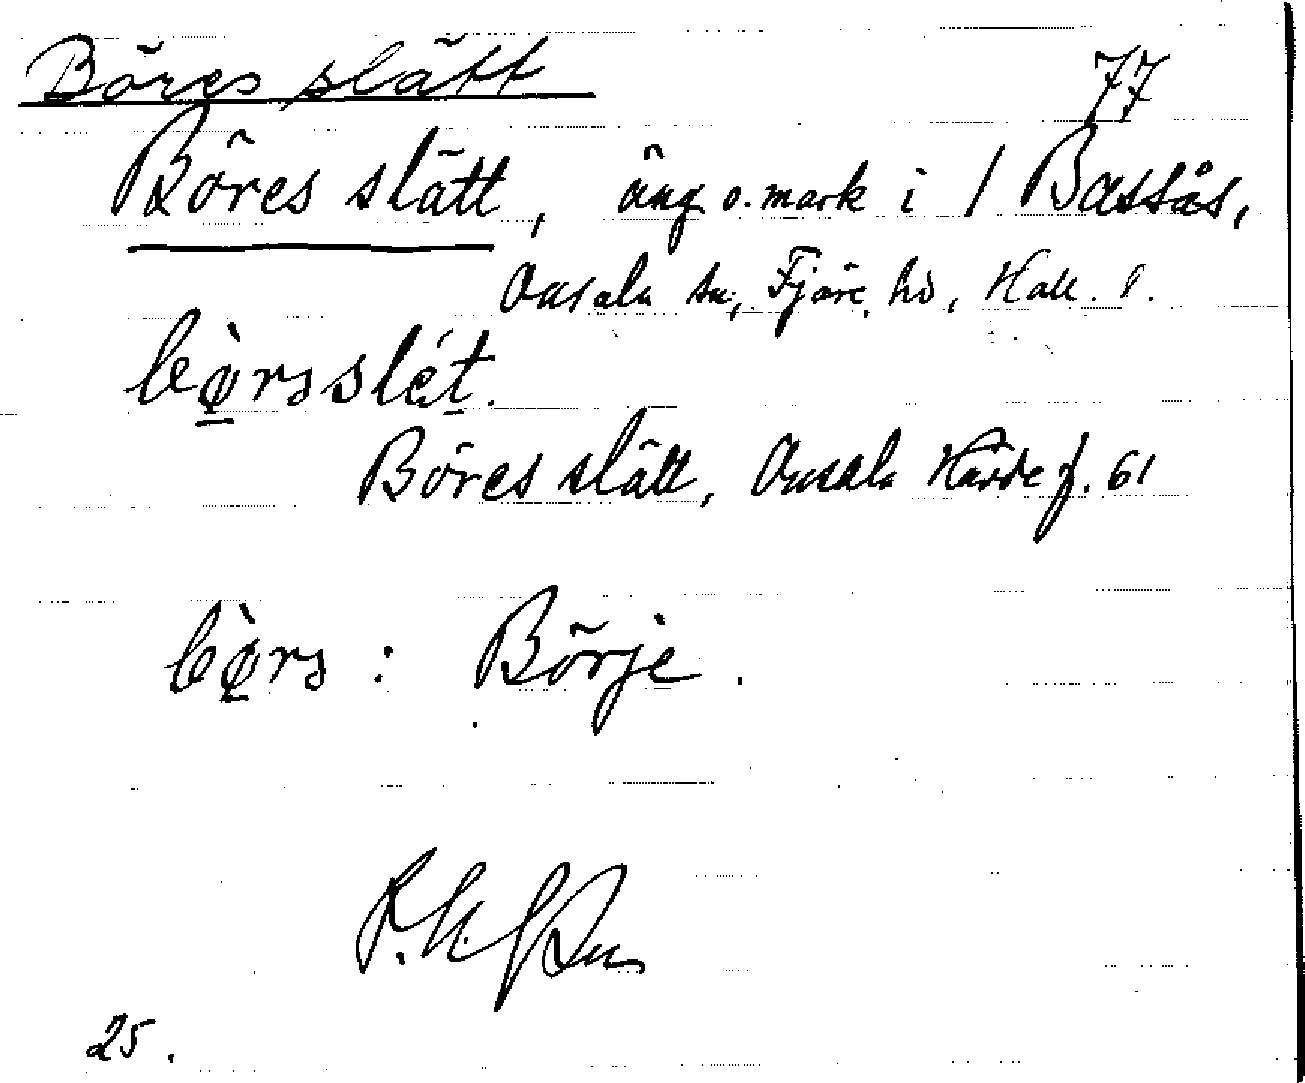 Böres slätt
77
Böres slätt, äng o. mark i 1 Bassås,
Onsala sn, Fjäre hd, Hall. l.
bø̀rsslét.
Böres slätt, Onsala Härde f. 61
bø̀rs : Börje.
25.